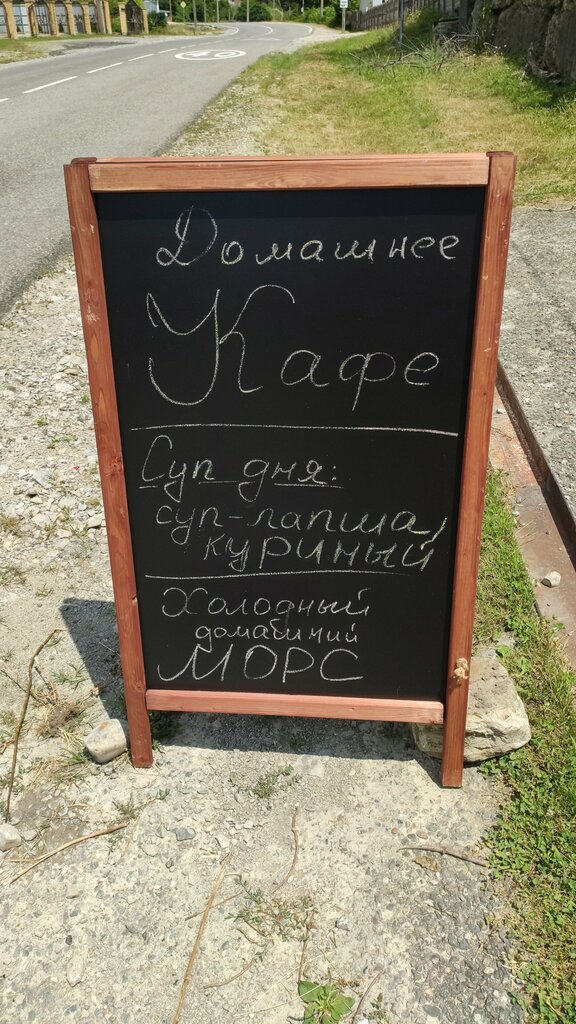 Домашнее
Кафе
Суп дня:
суп-лапша
куриный
Холодный
домашний
МОРС